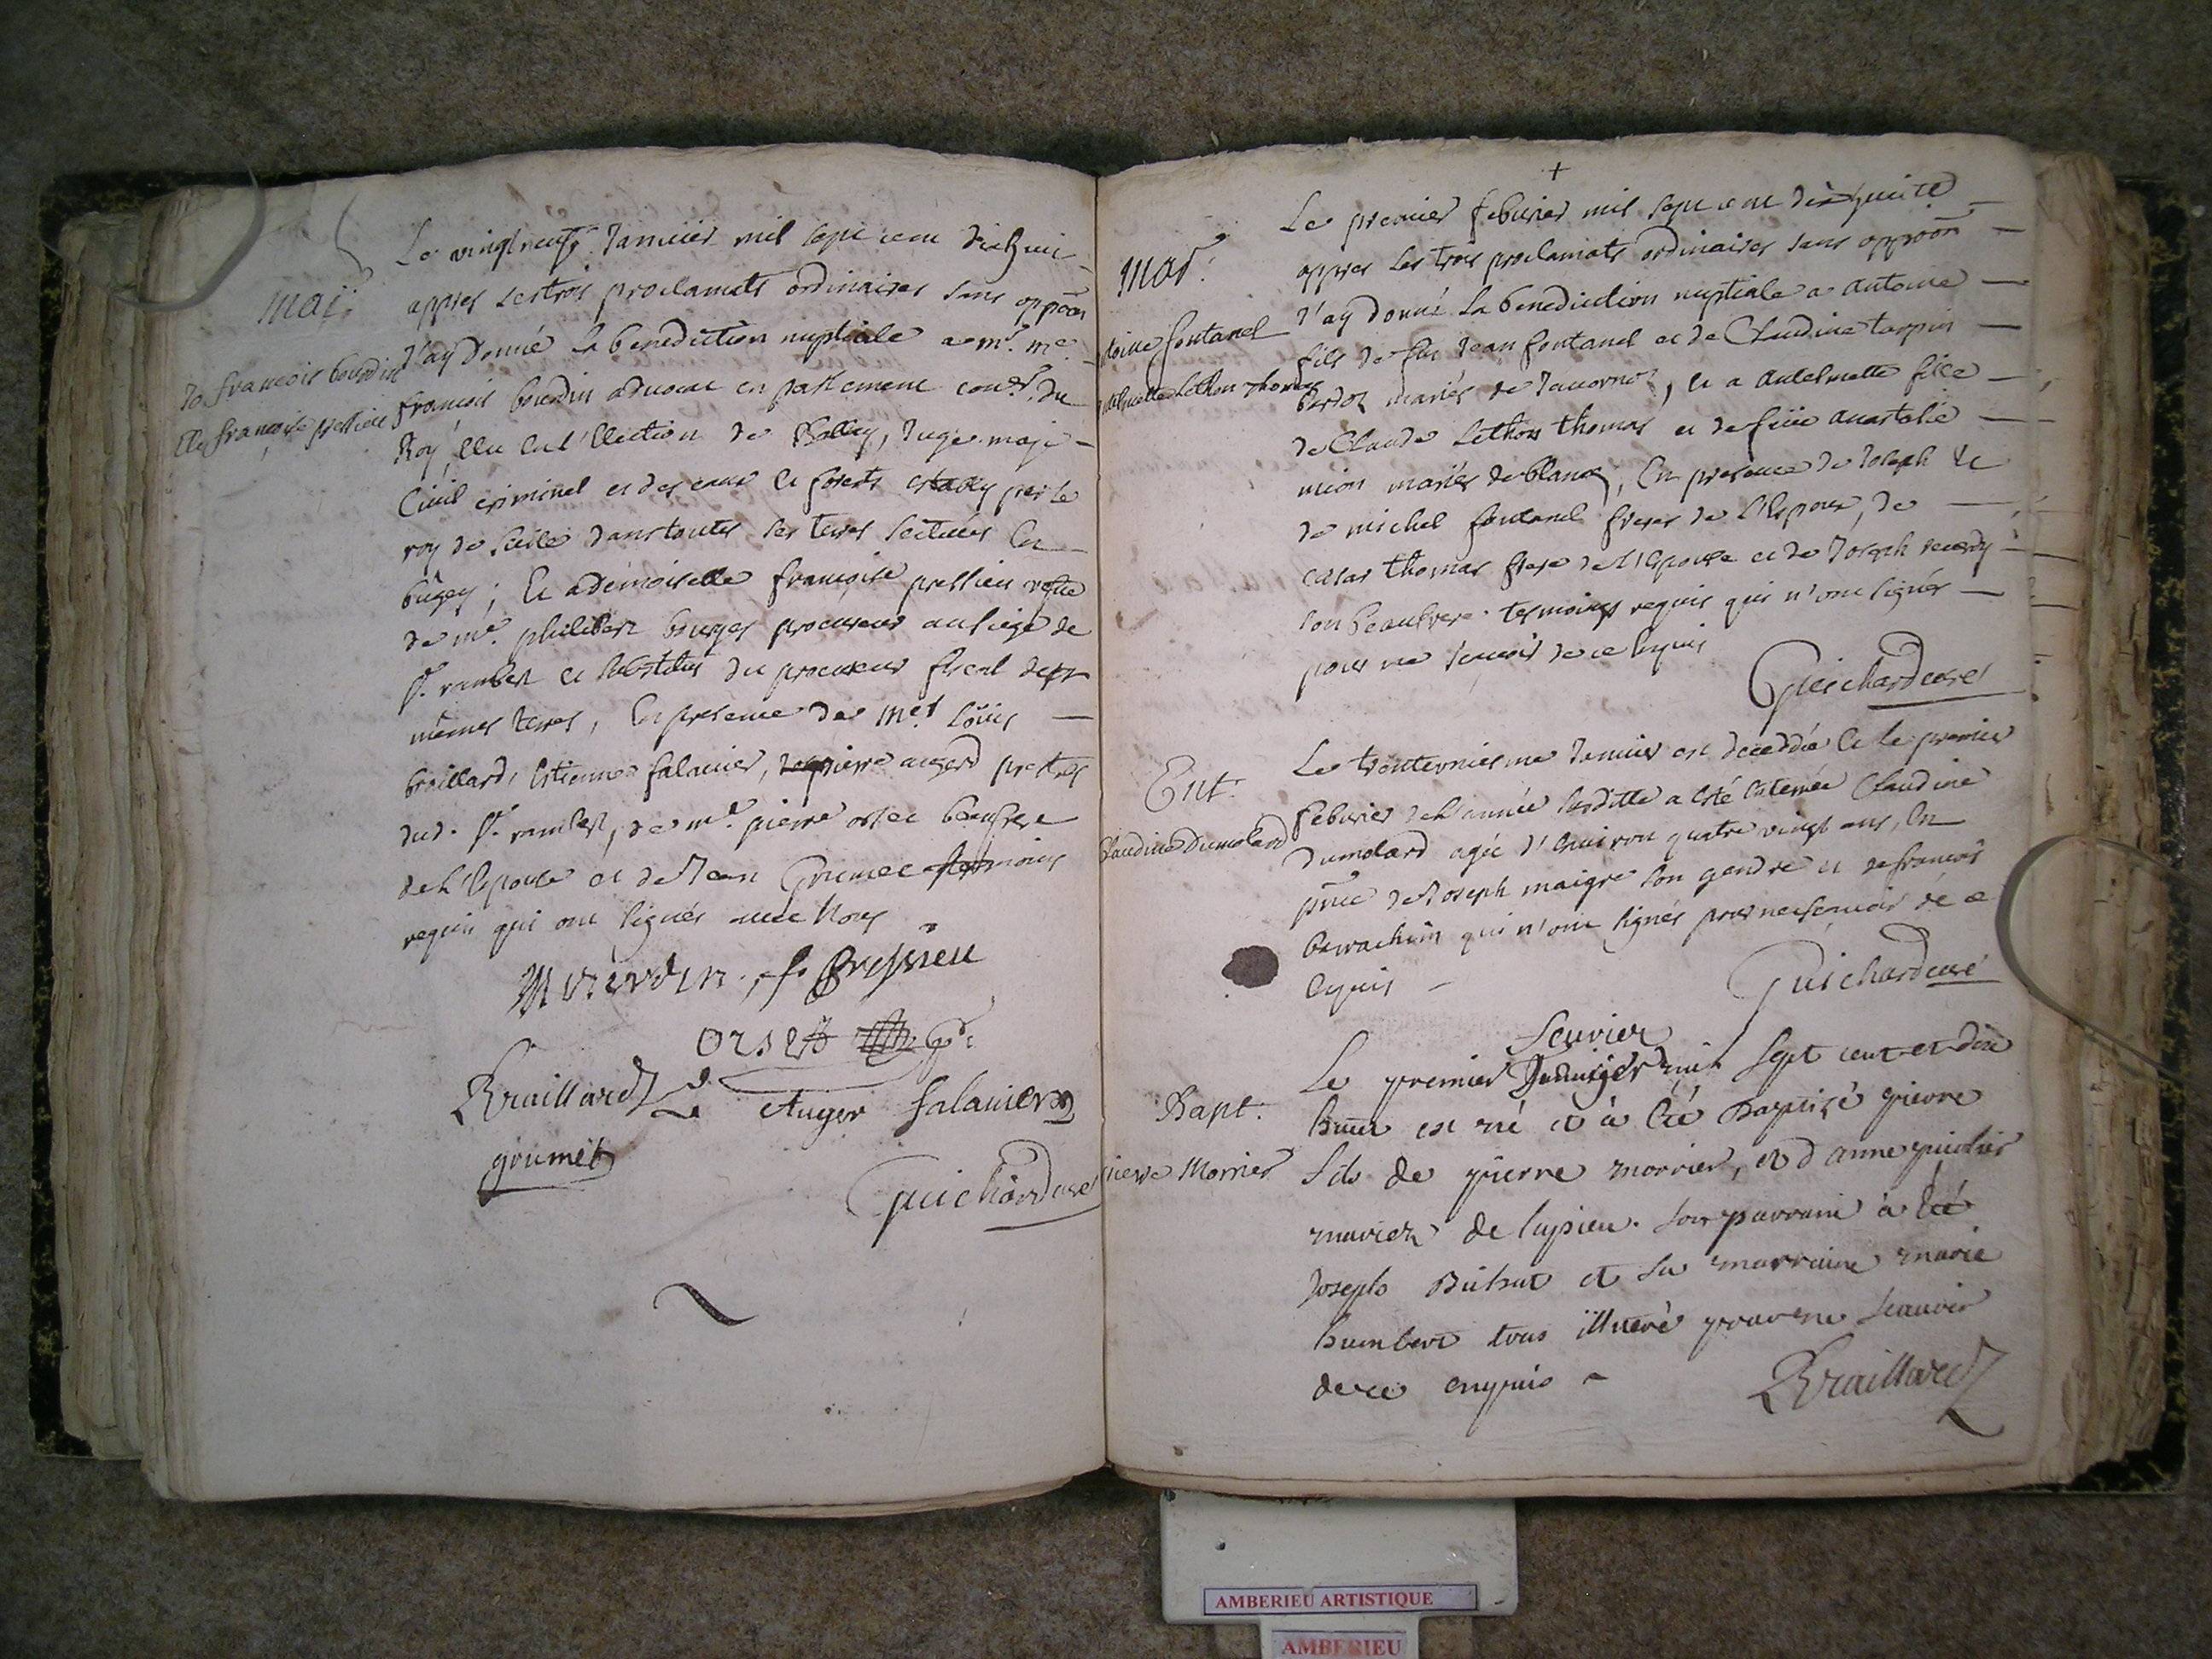 mar.
françois bourdin
françoise pressieu
Le vingtneufe Januier mil sept cent dixhuit
appres les trois proclamats ordinaires sans oppoõn
J'ay donné la benediction nuptiale a mr. me.
françois bourdin aduocat en parlement conser. du
Roy, Elu en l'Election de Belley, Juge maje
Ciuil criminel et des eaux et forets establÿ par le
roy de sicile dans toutes ses terres scituées En
bugey; Et a demoiselle françoise pressieu vefue
de me. philibert bourges procureur au siege de
st. rambert et substitut du procureur fiscal desd
mêmes terres, En presence de mes. Loüis
braillard, Estienne salauier, pierre augerd prestres
dud. st. rambert, de me. pierre orset beaufrere
de l'Epouse et de Jean Grumet tesmoins
requis qui ont signés auec Nous
f. Pressieu
Orset
Braillard
Auger salauier
grumet
Guichard curé
+
mar.
toine fontanel
Le premier febvrier mil sept cent dixhuite
appres les trois proclamats ordinaires sans oppoõn
J'ay donné la benediction nuptiale a antoine
fils de feu Jean fontanel et de Claudine tarpin
mariés de Jauornoz, et a antelmette fille
de Claude Lethon thomas et de füe anastasie
mion mariés de blanaz, En presence de Joseph et
de michel fontanel freres de l'Epoux, de
thomas frere de l'Epouse et de Joseph
son beaufrere tesmoins requis qui n'ont signés
pour ne scauoir de ce enquis
Guichard curé
Ent.
Claudine Dumolard
Le trenteuniesme Januier est deceddée et le premier
febvrier de l'année susditte a esté enterrée Claudine
Dumolard agée d'enuiron quatre vingt ans, En
pñce de Joseph maigre son gendre et de françois
qui n'ont signés pour ne scauoir de ce
enquis
Guichard curé
Bapt.
pierre Morrier
feuvrier
Le premier Januier mil sept cent et dix
huit est né et à été Baptizé pierre
fils de pierre morrier, et d anne
mariez de lupieu. son parrain à été
Joseph et sa marraine marie
humbert tous illiteré pour ne scauoir
de ce enquis
Braillard
AMBERIEU ARTISTIQUE
AMBERIEU